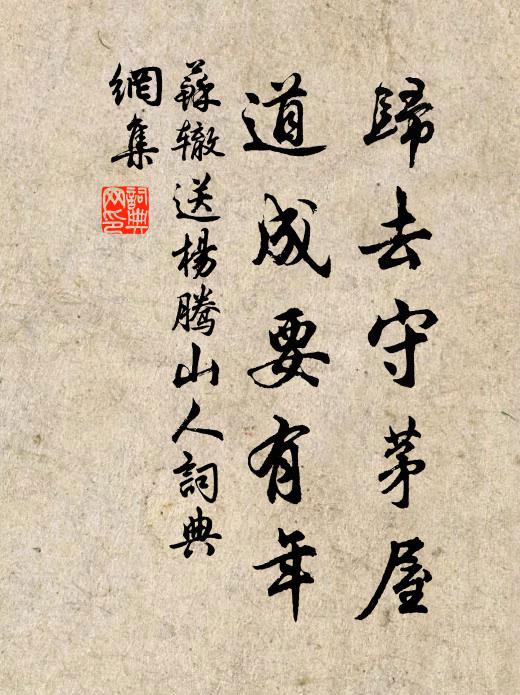 歸去守茅屋
道成要有年
蘇辙送楊腾山人詞典
網集
詞典网印